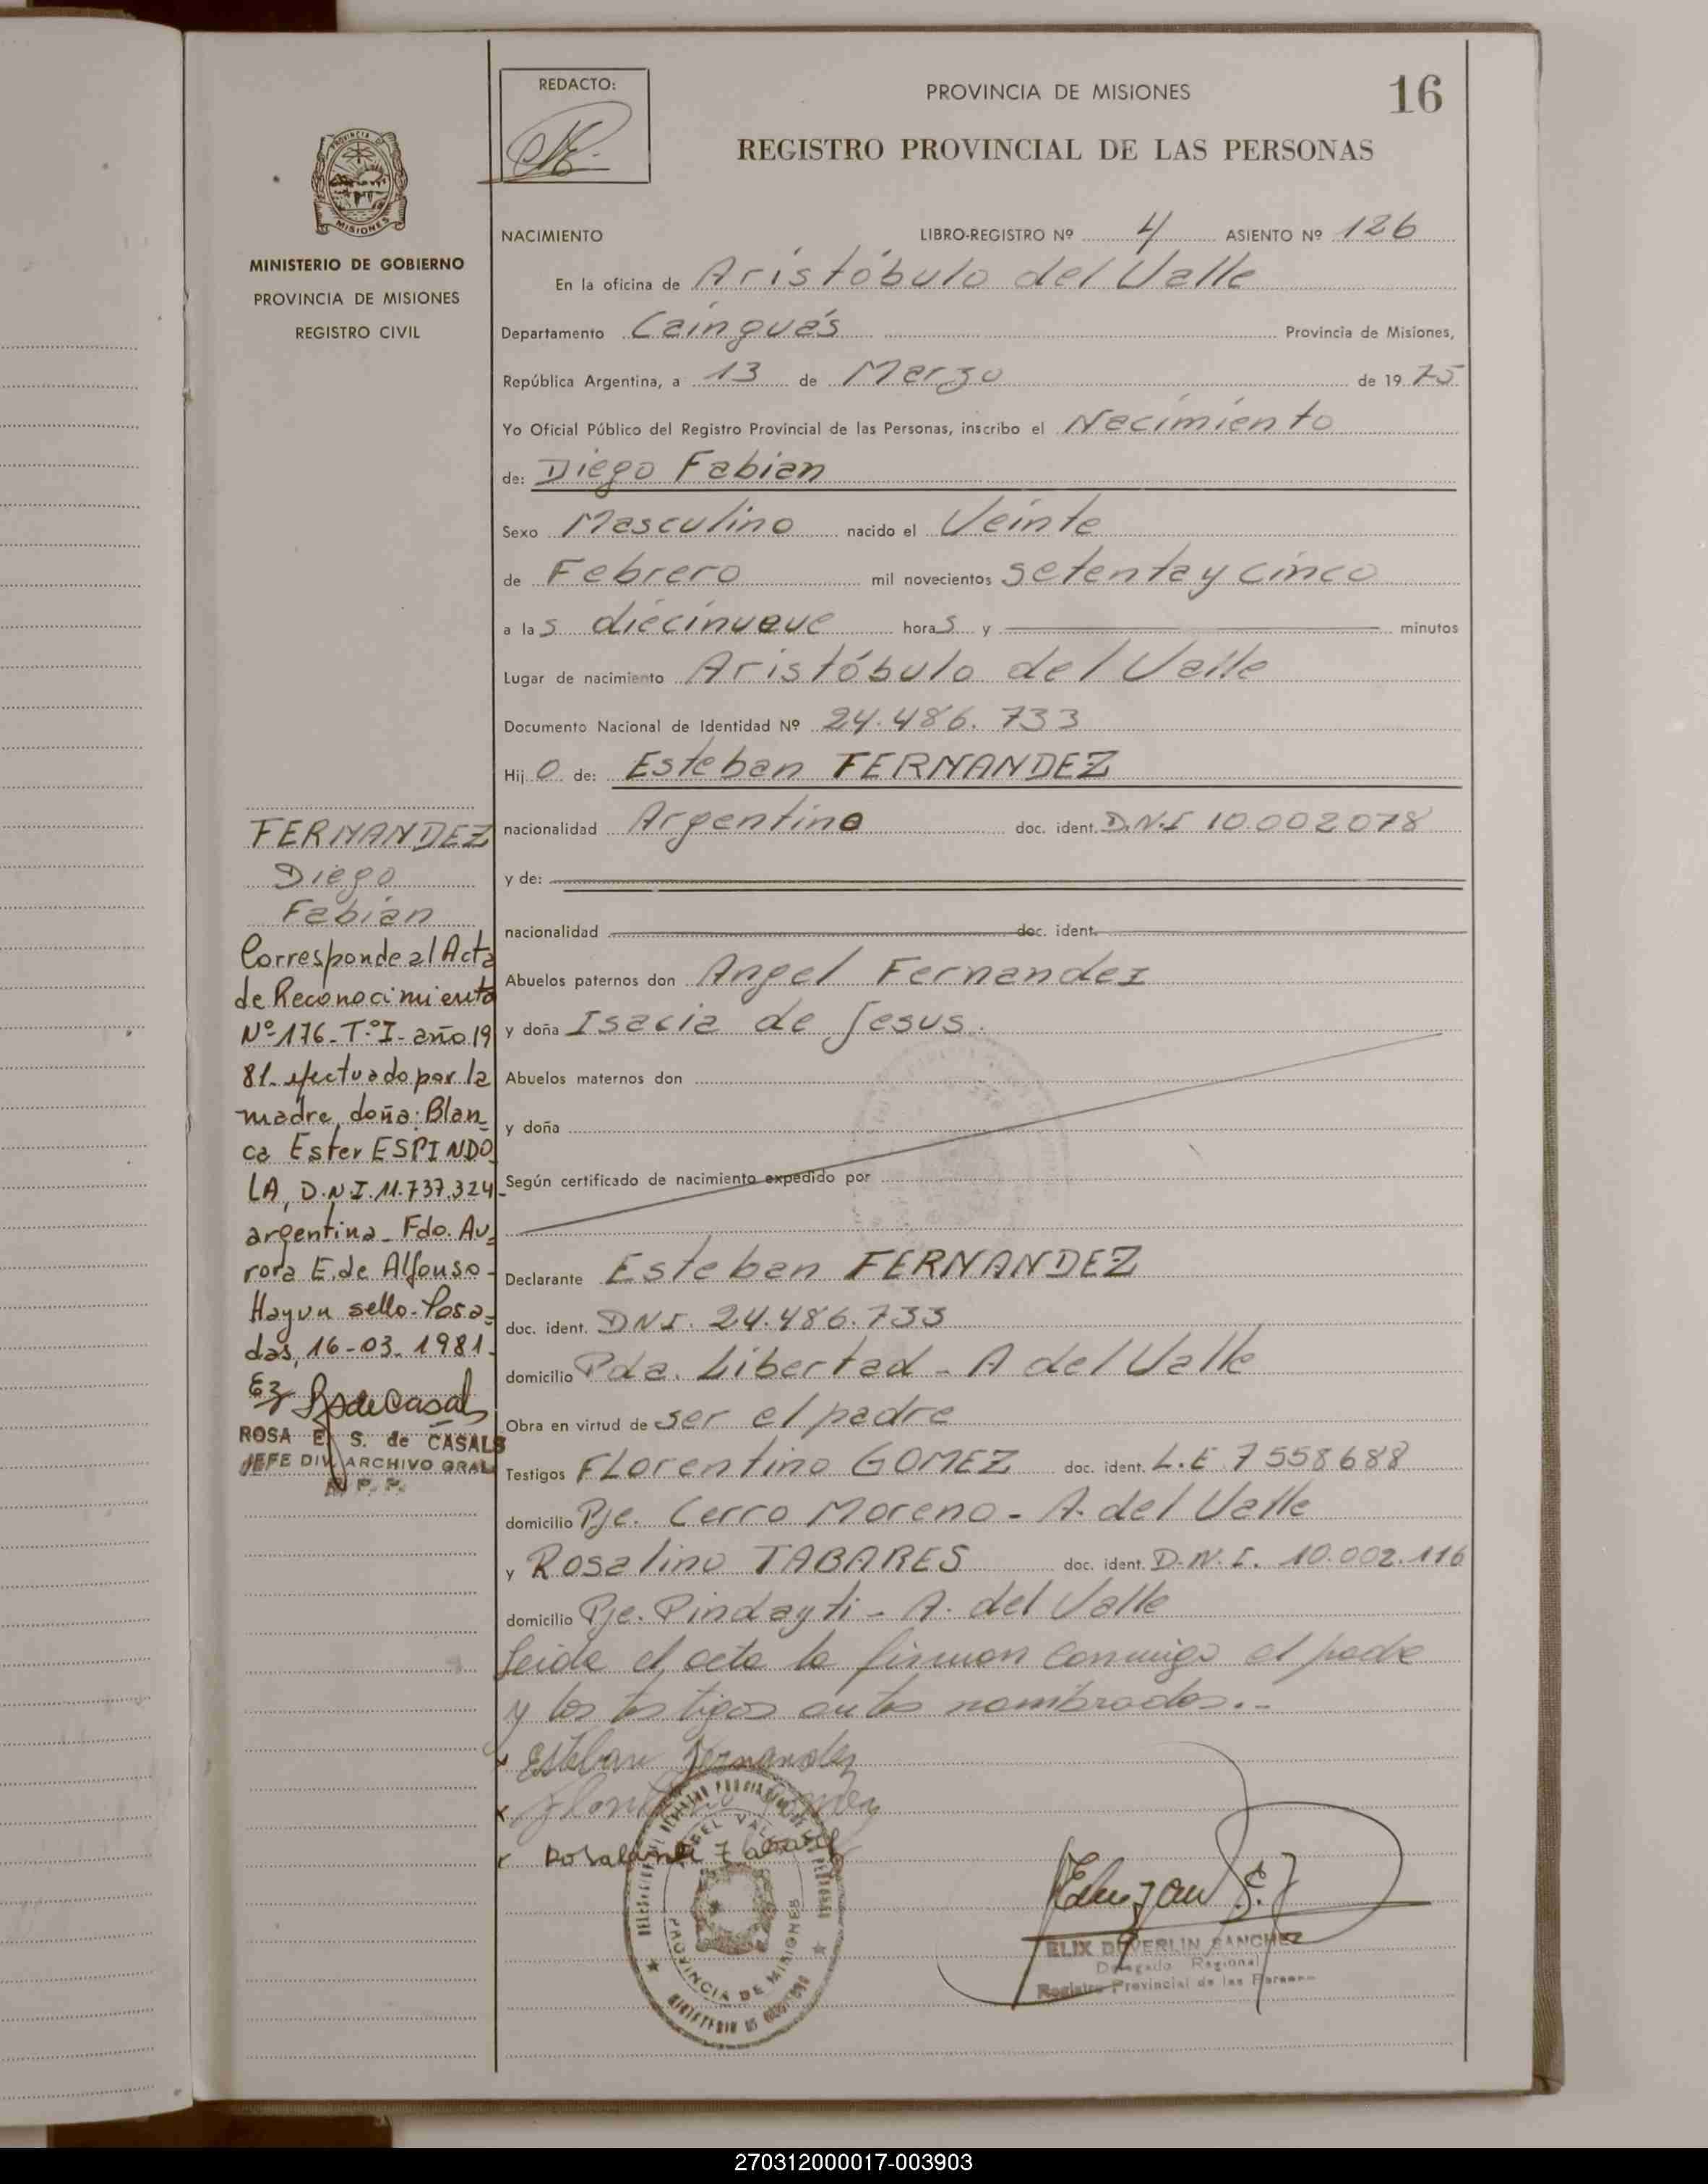 REDACTO:
PROVINCIA DE MISIONES
16
REGISTRO PROVINCIAL DE LAS PERSONAS
PROVINCIA D
MISIONES
MINISTERIO DE GOBIERNO
PROVINCIA DE MISIONES
REGISTRO CIVIL
NACIMIENTO LIBRO-REGISTRO Nº 4 ASIENTO Nº 126
En la oficina de Aristóbulo del Valle
Departamento Cainguás Provincia de Misiones,
República Argentina, a 13 de Marzo de 1975
Yo Oficial Público del Registro Provincial de las Personas, inscribo el Nacimiento
de: Diego Fabian
Sexo Masculino nacido el Veinte
de Febrero mil novecientos setenta y cinco
a las diecinueve horas y minutos
Lugar de nacimiento Aristóbulo del Valle
Documento Nacional de Identidad Nº 24.486.733
Hijo de: Esteban FERNANDEZ
nacionalidad Argentino doc. ident. D.N.I 10.002078
y de:
nacionalidad doc. ident.
Abuelos paternos don Angel Fernandez
y doña Isacia de Jesus.
Abuelos maternos don
y doña
Según certificado de nacimiento expedido por
Declarante Esteban FERNANDEZ
doc. ident. DNI. 24.486.733
domicilio Pda. Libertad - A del Valle
Obra en virtud de ser el padre
Testigos FLorentino GOMEZ doc. ident. L.E 7558688
domicilio Pje. Cerro Moreno - A. del Valle
y Rosalino TABARES doc. ident. D.N.I. 10.002.116
domicilio Pje. Pindayti - A. del Valle
Leida el acta la firman conmigo el padre
y los testigos antes nombrados.-
Esteban Fernandez
FERNANDEZ
Diego
Fabián
Corresponde al Acta
de Reconocimiento
Nº 176- Tº I- año 19
81- efectuado por la
madre, doña: Blan-
ca Ester ESPINDO
LA, D.N.I. 11.737.324-
argentina- Fdo. Au-
rora E. de Alfonso-
Hay un sello- Posa-
das, 16-03-1981-
ROSA E. S. de CASALS
JEFE DIV. ARCHIVO GRAL
R. P. P.
PROVINCIA DE MISIONES
SANCHEZ
Delegado Regional
Registro Provincial de las Person
270312000017-003903